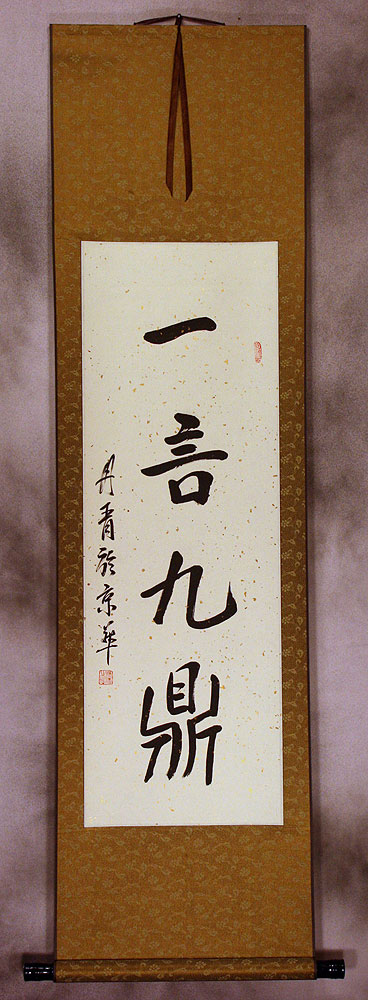 一言九鼎
丹青於京華